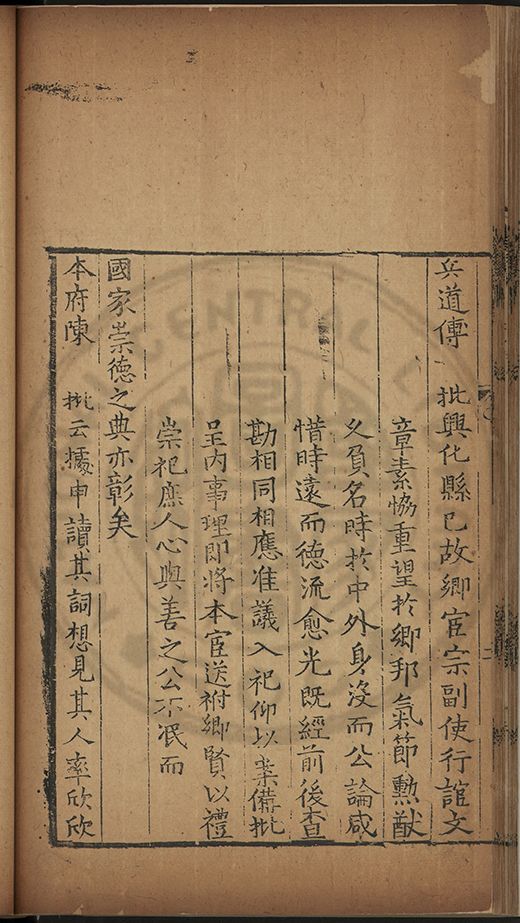 兵道傅 批興化縣已故鄉宦宗副使行誼文
章素恊重望扵鄉邦氣節勲猷
久負名時扵中外身沒而公論咸
惜時遠而德流愈光既經前後查
勘相同相應准議入祀仰以案備批
呈内事理即將本宦送祔鄉賢以禮
崇祀庶人心與善之公不泯而
國家崇德之典亦彰矣
本府陳 批云據申讀其詞想見其人率欣欣
CENTRAL